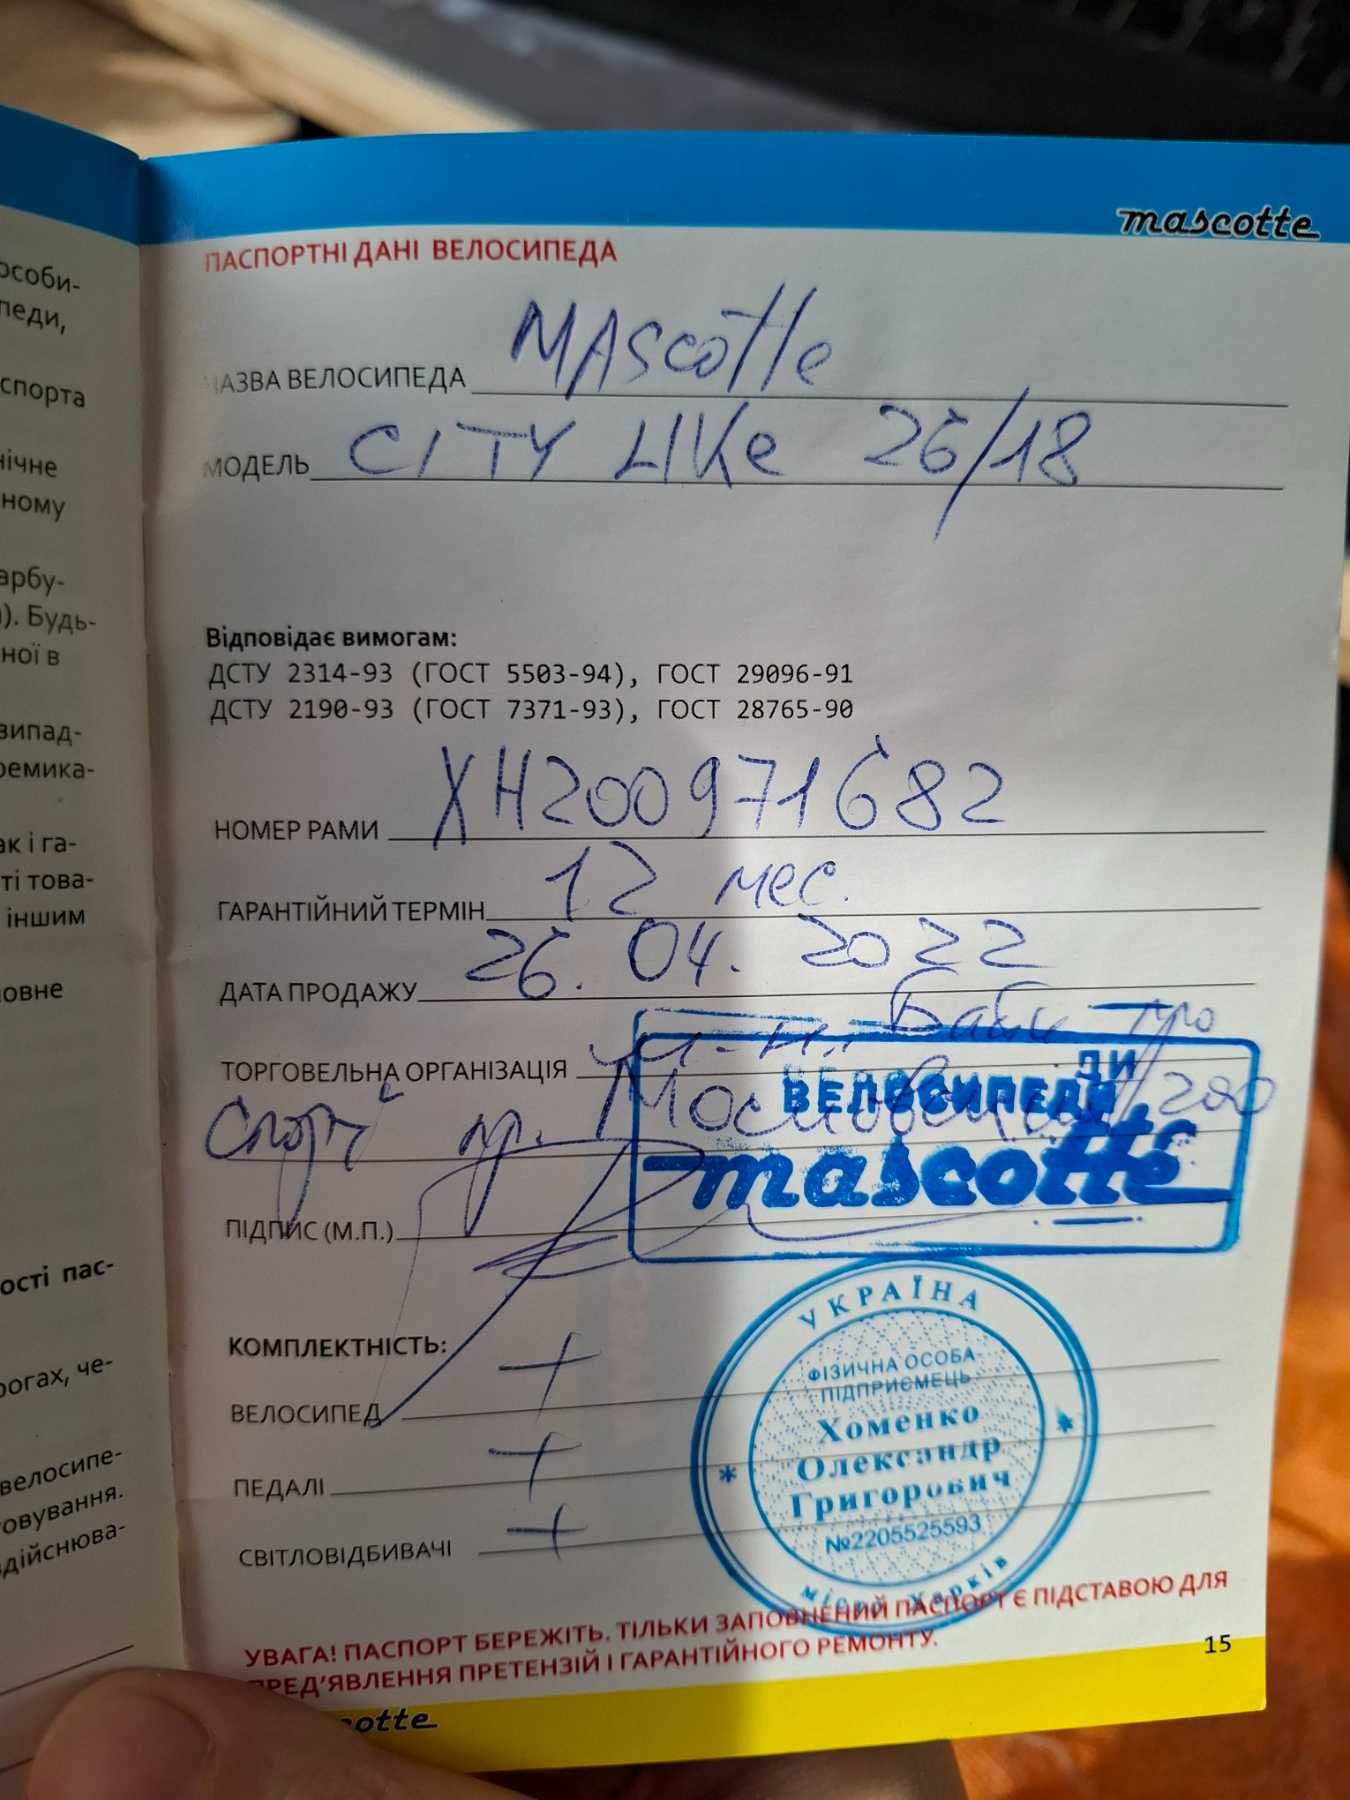 особи-
педи,
спорта
нічне
ному
арбу-
). Будь-
ної в
випад-
ремика-
ак і га-
ті това-
іншим
овне
ості пас-
рогах, че-
велосипе-
овування.
здійснюва-
mascotte
ПАСПОРТНІ ДАНІ ВЕЛОСИПЕДА
НАЗВА ВЕЛОСИПЕДА MAScotte
МОДЕЛЬ CITY LIKe 26/18
Відповідає вимогам:
ДСТУ 2314-93 (ГОСТ 5503-94), ГОСТ 29096-91
ДСТУ 2190-93 (ГОСТ 7371-93), ГОСТ 28765-90
НОМЕР РАМИ XH200971682
ГАРАНТІЙНИЙ ТЕРМІН 12 мес.
ДАТА ПРОДАЖУ 26.04.2022
ТОРГОВЕЛЬНА ОРГАНІЗАЦІЯ м-н. Байк про
Спорт пр. Московский/200
ВЕЛОСИПЕДИ
mascotte
ПІДПИС (М.П.)
КОМПЛЕКТНІСТЬ:
ВЕЛОСИПЕД +
ПЕДАЛІ +
СВІТЛОВІДБИВАЧІ +
УКРАЇНА
ФІЗИЧНА ОСОБА
ПІДПРИЄМЕЦЬ
Хоменко
Олександр
Григорович
№2205525593
місто Харків
УВАГА! ПАСПОРТ БЕРЕЖІТЬ. ТІЛЬКИ ЗАПОВНЕНИЙ ПАСПОРТ Є ПІДСТАВОЮ ДЛЯ
ПРЕД'ЯВЛЕННЯ ПРЕТЕНЗІЙ І ГАРАНТІЙНОГО РЕМОНТУ.
15
cotte